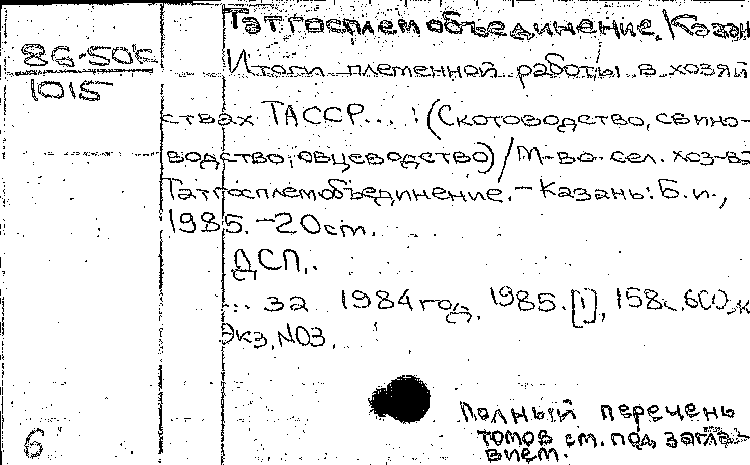 Татгосплемобъединение, Казан
86-50к
1015
Итоги племенной работы в хозяй
ствах ТАССР... : (Скотоводство, свино-
водство, овцеводство) / М-во. сел. хоз-ва
Татгосплемобъединение. - Казань: Б.и.,
1985. - 20 cm.
ДСП.
... за 1984 год. 1985. [1], 158с. 600
Экз. N03.
Полный перечень
томов см. под загла-
вием.
6